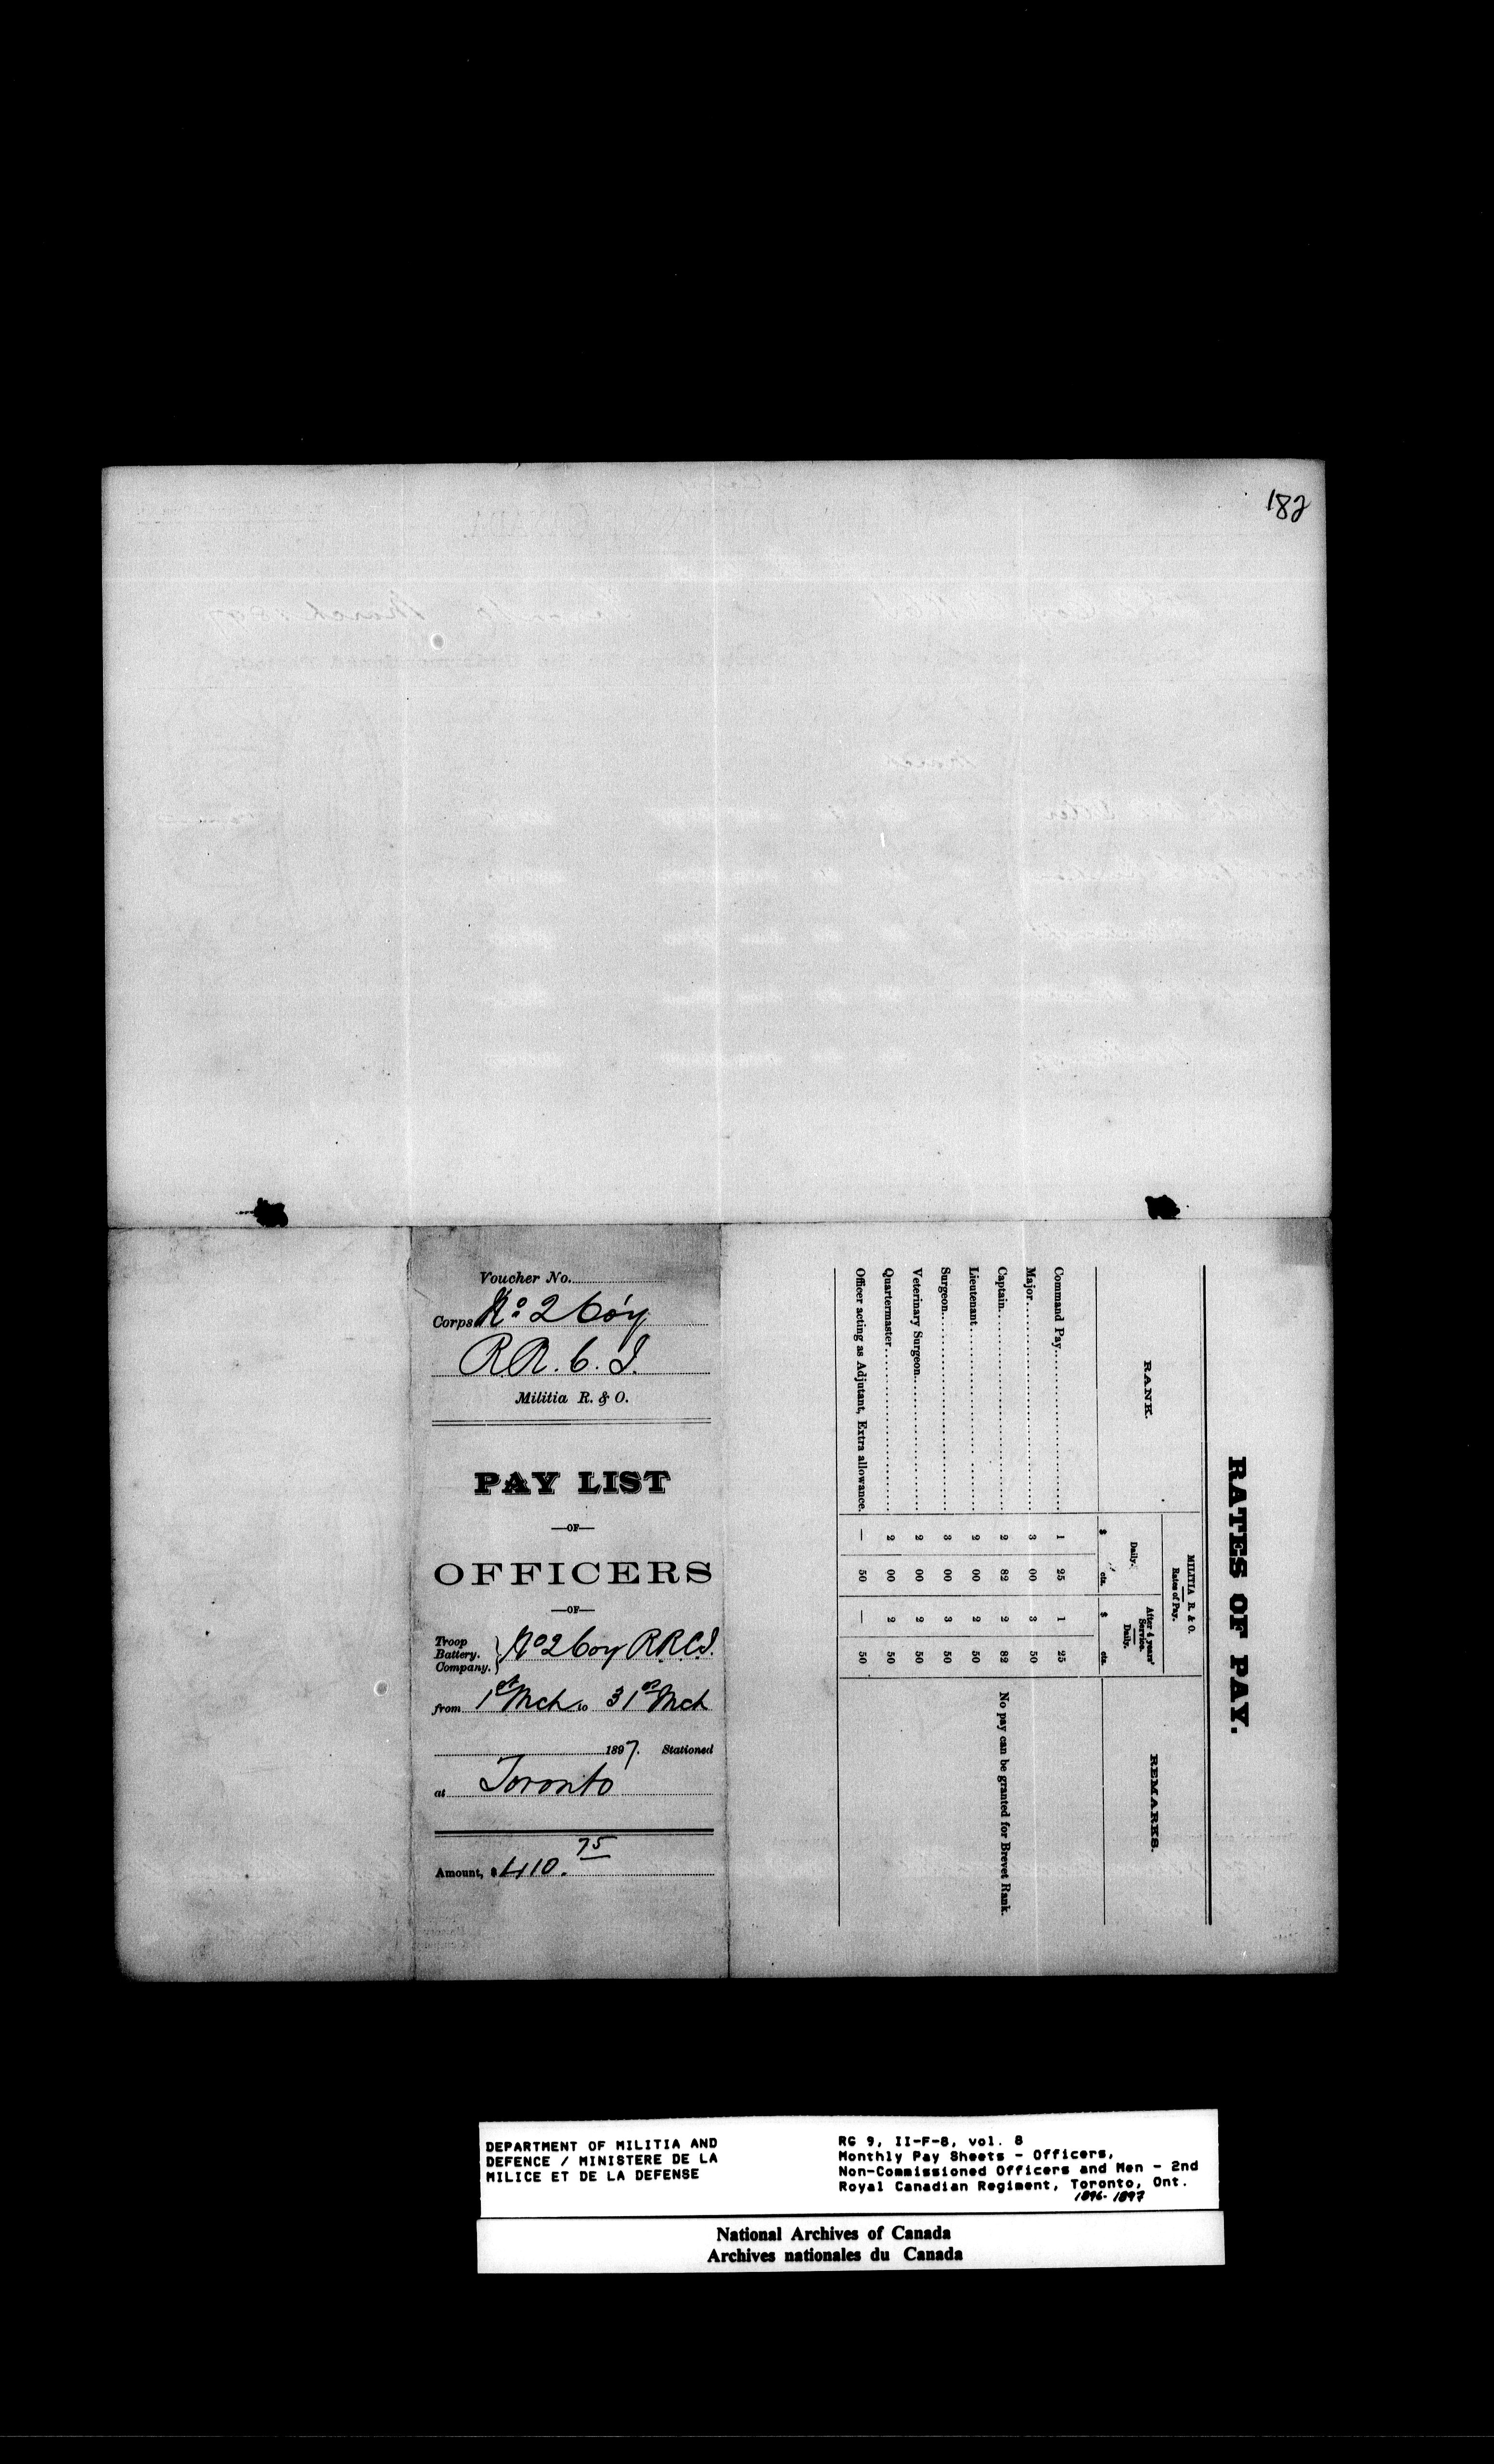 182
Voucher No.
Corps No 2 Coy
R.R.C.I.
Militia R. & O.
PAY LIST
—OF—
OFFICERS
—OF—
Troop
Battery.
Company.
No 2 Coy R.R.C.I.
from 1st Mch to 31st Mch
1897. Stationed
at Toronto
Amount, $410.75
RATES OF PAY.
RANK.
MILITIA R. & O.
Rates of Pay.
REMARKS.
Daily.
After 4 years' Service. Daily.
$ cts. $ cts.
Command Pay 1 25 1 25
Major 3 00 3 50
Captain 2 82 2 82 No pay can be granted for Brevet Rank.
Lieutenant 2 00 2 50
Surgeon 3 00 3 50
Veterinary Surgeon 2 00 2 50
Quartermaster 2 00 2 50
Officer acting as Adjutant, Extra allowance. — 50 — 50
DEPARTMENT OF MILITIA AND
DEFENCE / MINISTERE DE LA
MILICE ET DE LA DEFENSE
RG 9, II-F-8, vol. 8
Monthly Pay Sheets - Officers,
Non-Commissioned Officers and Men - 2nd
Royal Canadian Regiment, Toronto, Ont.
1896-1897
National Archives of Canada
Archives nationales du Canada